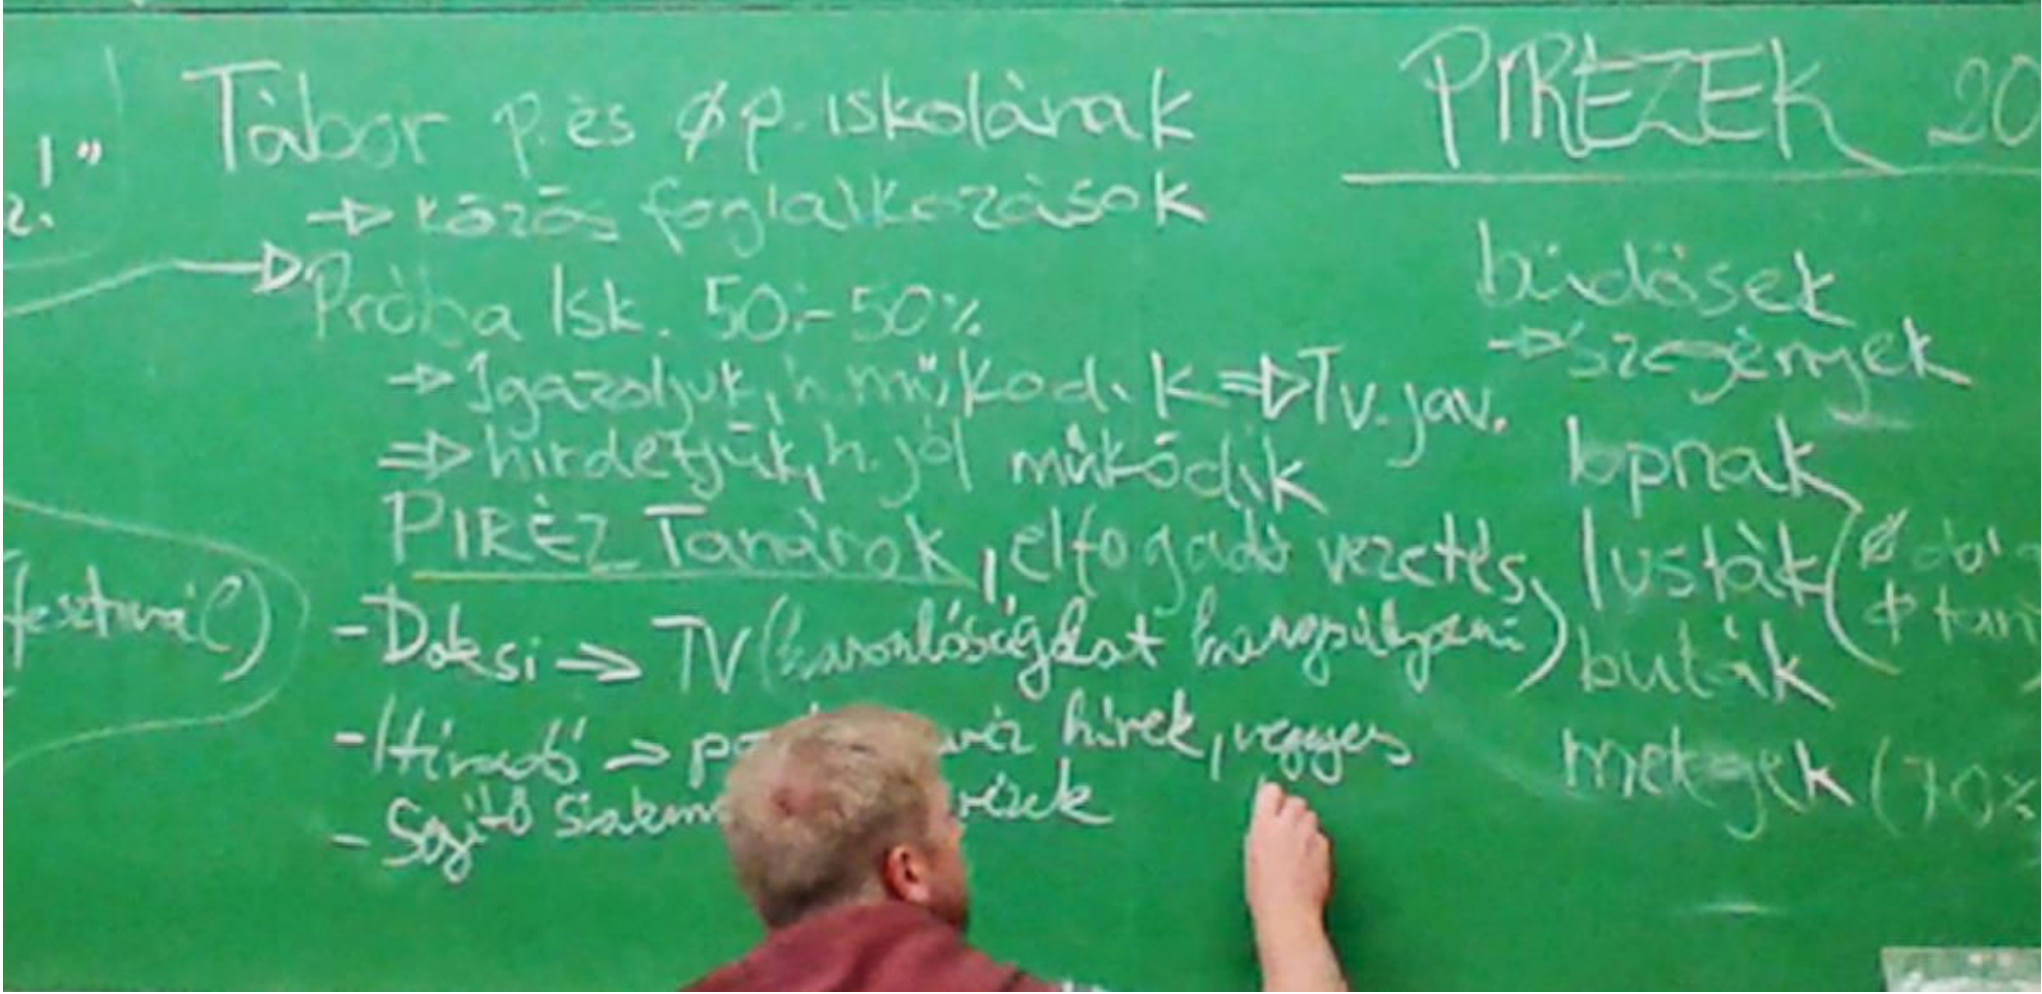 Tábor p. és øp. iskolának
→ közös foglalkozások
→ Próba Isk. 50-50%
→ Igazoljuk, h. működik ⇒ Tv. jav.
⇒ hirdetjük, h. jól működik
PIRÉZ Tanárok, elfogadó vezetés,
- Doksi → TV (hasonlóságokat hangsúlyozni)
- Híradó → hírek, vegyes
- Segítő
fesztivál)
PIRÉZEK 20
büdösek
→ szegények
lopnak
lusták
buták
melegek (70%